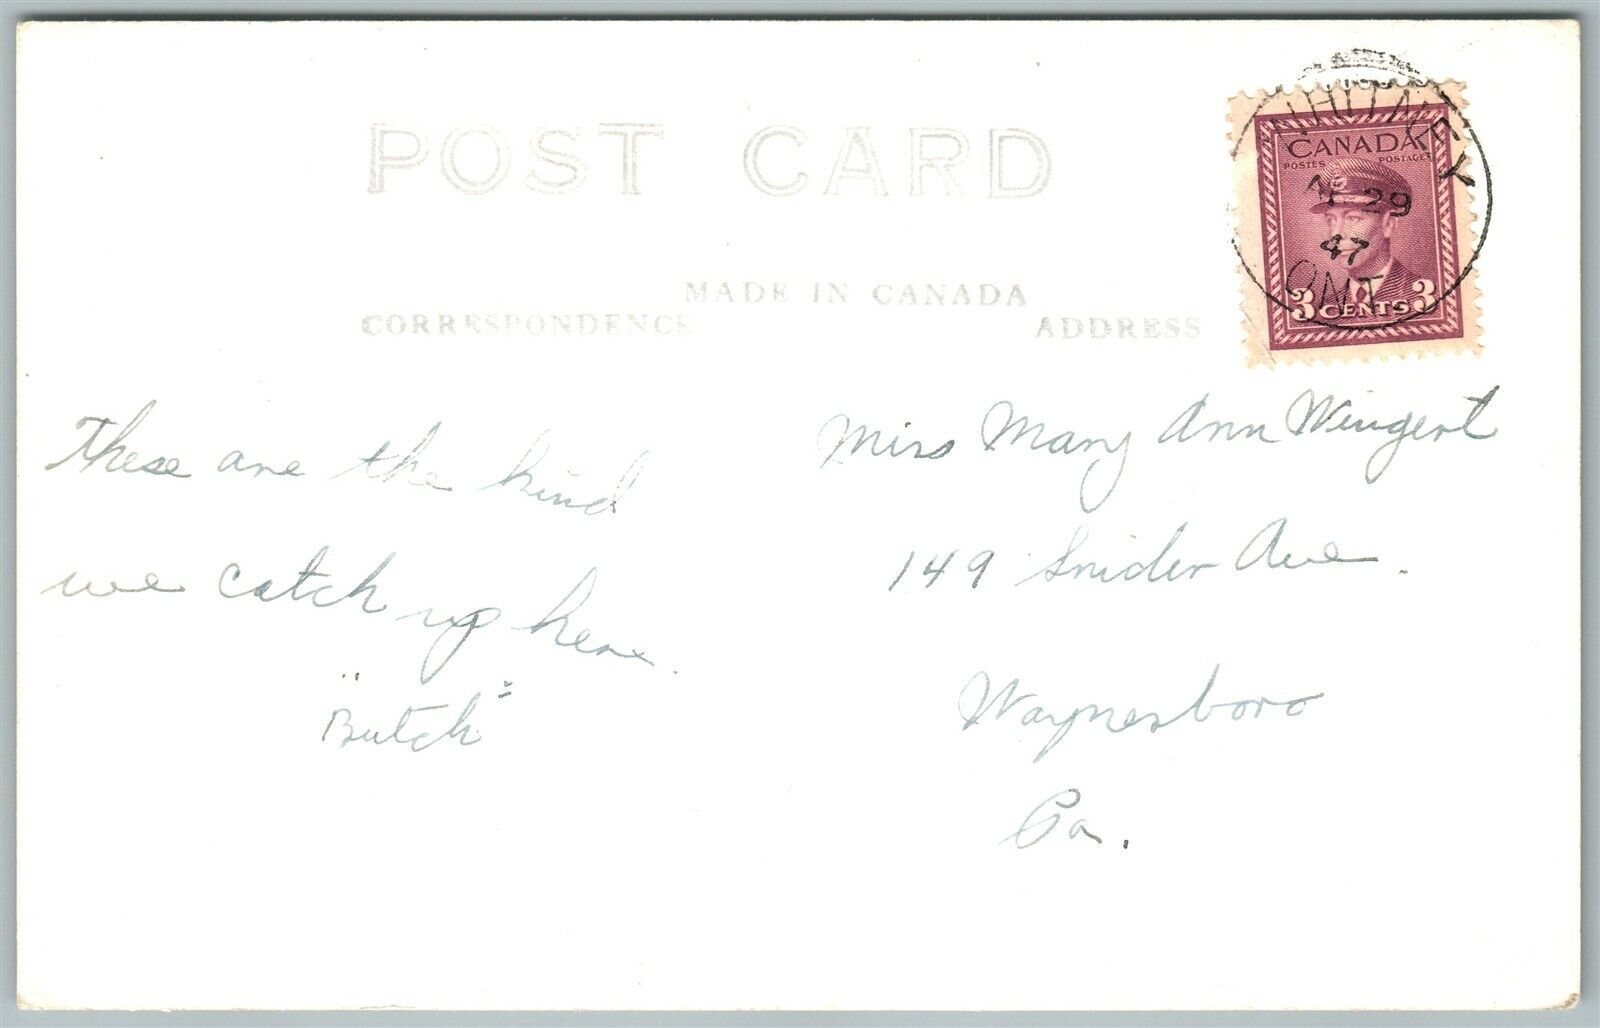 POST CARD
MADE IN CANADA
CORRESPONDENCE ADDRESS
WHITNEY
CANADA
POSTES POSTAGE
29
47
ONT.
3 CENTS 3
These are the kind
we catch up here.
"Butch"
Miss Mary Ann Wingert
149 Snider Ave.
Waynesboro
Pa.